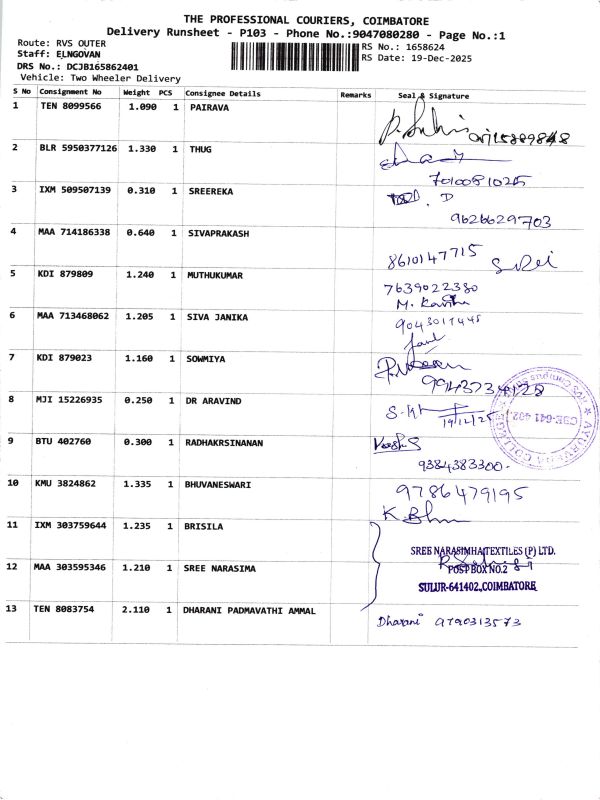 THE PROFESSIONAL COURIERS, COIMBATORE
Delivery Runsheet - P103 - Phone No.:9047080280 - Page No.:1
Route: RVS OUTER
Staff: ELNGOVAN
DRS No.: DCJB165862401
Vehicle: Two Wheeler Delivery
RS No.: 1658624
RS Date: 19-Dec-2025
S No Consignment No Weight PCS Consignee Details Remarks Seal & Signature
1 TEN 8099566 1.090 1 PAIRAVA
2 BLR 5950377126 1.330 1 THUG
7010081025
3 IXM 509507139 0.310 1 SREEREKA
9626629703
4 MAA 714186338 0.640 1 SIVAPRAKASH
8610147715
5 KDI 879809 1.240 1 MUTHUKUMAR
7639022380
6 MAA 713468062 1.205 1 SIVA JANIKA
9043017445
7 KDI 879023 1.160 1 SOWMIYA
8 MJI 15226935 0.250 1 DR ARAVIND
19/12/25
9 BTU 402760 0.300 1 RADHAKRSINANAN
9384383300.
10 KMU 3824862 1.335 1 BHUVANESWARI 9786479195
11 IXM 303759644 1.235 1 BRISILA
SREE NARASIMHA TEXTILES (P) LTD.
12 MAA 303595346 1.210 1 SREE NARASIMA
POST BOX NO.2
SULUR-641402, COIMBATORE
13 TEN 8083754 2.110 1 DHARANI PADMAVATHI AMMAL
Dharani 9790313573